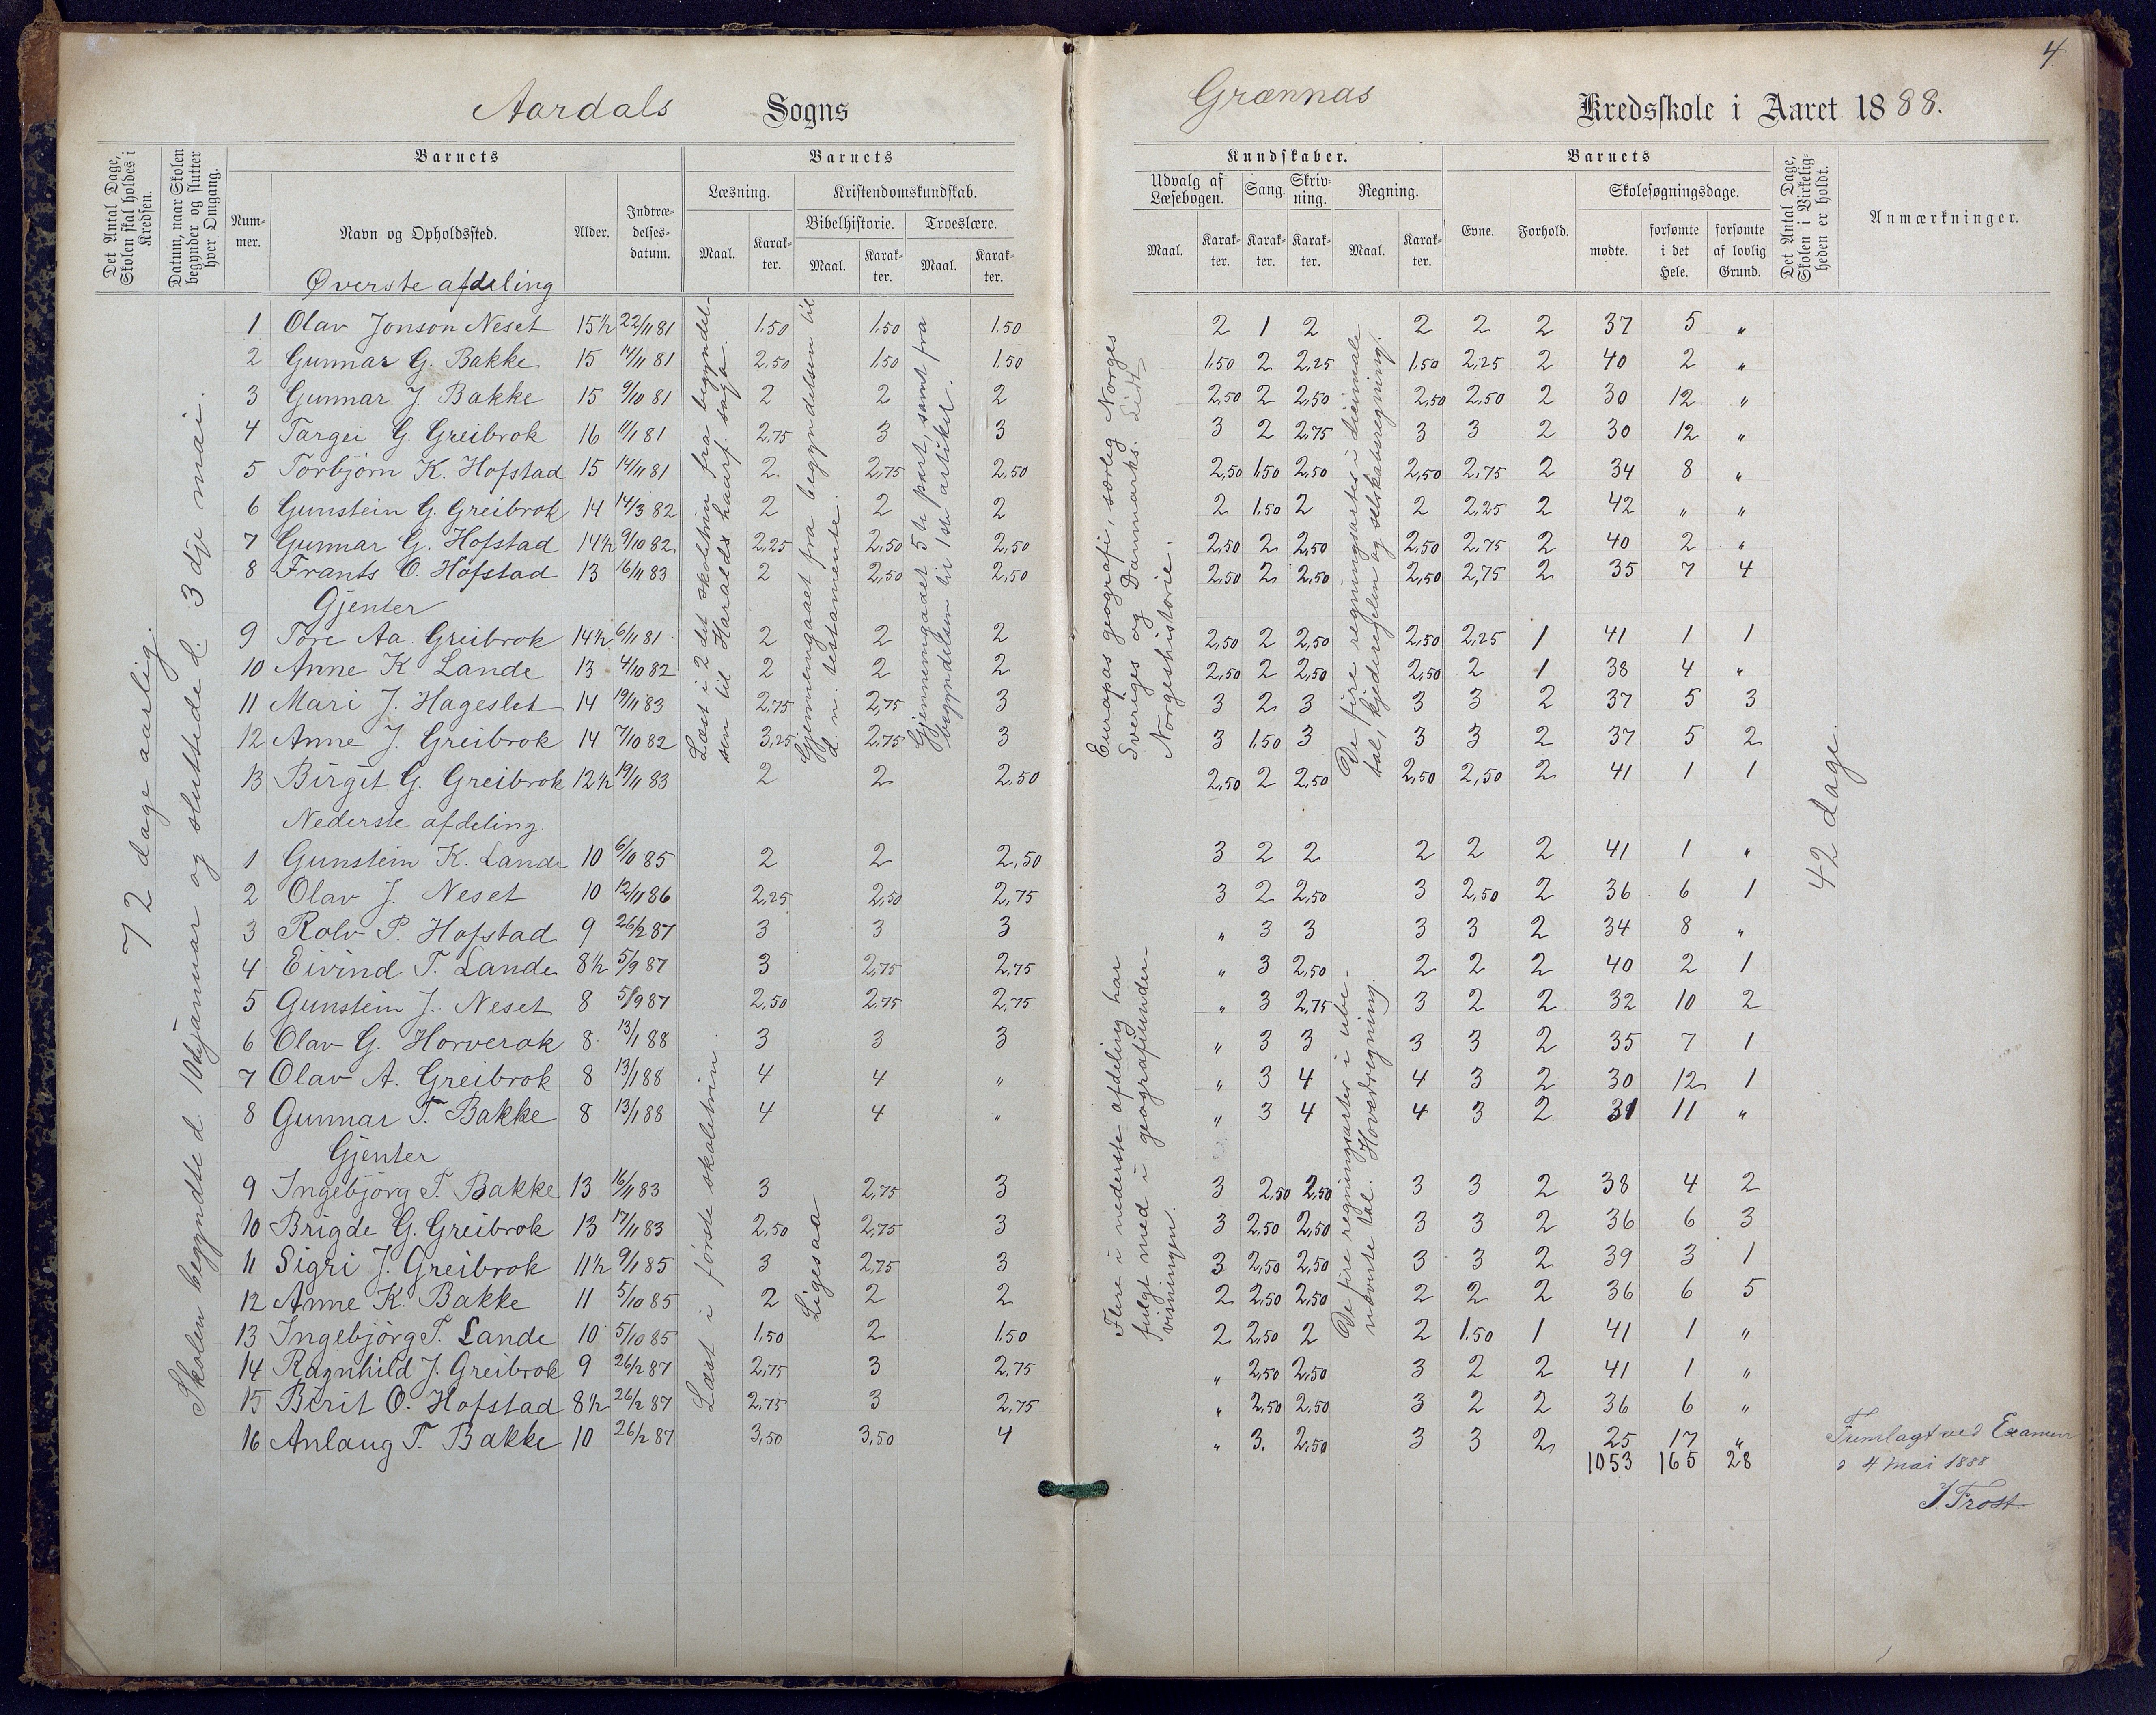 4
Aardals Sogns Grænnas Kredsskole i Aaret 1888.
Det Antal Dage, Skolen skal holdes i Kredsen.
Datum, naar Skolen begynder og slutter hver Omgang.
Barnets
Num-mer.
Navn og Opholdssted.
Alder.
Indtræ-delses-datum.
Barnets
Læsning.
Kristendomskundskab.
Bibelhistorie.
Troeslære.
Maal. Karak-ter. Maal. Karak-ter. Maal. Karak-ter.
Kundskaber.
Udvalg af Læsebogen. Sang. Skriv-ning. Regning.
Maal. Karak-ter. Karak-ter. Karak-ter. Maal. Karak-ter.
Barnets
Evne. Forhold. Skolesøgningsdage.
mødte. forsømte i det Hele. forsømte af lovlig Grund.
Det Antal Dage, Skolen i Virkelig-heden er holdt.
Anmærkninger.
72 dage aarlig.
Skolen begyndte d. 10de januar og sluttede d. 3dje mai.
Øverste afdeling
1 Olav Jonson Neset 15½ 22/11 81 1.50 1.50 1.50 2 1 2 2 2 2 37 5 "
2 Gunnar G. Bakke 15 14/11 81 2.50 1.50 1.50 1.50 2 2,25 1.50 2,25 2 40 2 "
3 Gunnar J. Bakke 15 9/10 81 2 2 2 2,50 2 2,50 2,50 2,50 2 30 12 "
4 Targei G. Greibrok 16 11/1 81 2,75 3 3 3 2 2,75 3 3 2 30 12 "
5 Torbjørn K. Hofstad 15 14/11 81 2. 2,75 2,50 2,50 1.50 2,50 2,50 2,75 2 34 8 "
6 Gunstein G. Greibrok 14 14/3 82 2 2 2 2 1.50 2 2 2,25 2 42 " "
7 Gunnar G. Hofstad 14½ 9/10 82 2,25 2,50 2,50 2,50 2 2,50 2,50 2,75 2 40 2 "
8 Frants O. Hofstad 13 16/11 83 2 2,50 2,50 2,50 2 2,50 2,50 2,75 2 35 7 4
Gjenter
9 Tore Aa. Greibrok 14½ 6/11 81 2 2 2 2,50 2 2,50 2,50 2,25 1 41 1 1
10 Anne K. Lande 13 4/10 82 2 2 2 2,50 2 2,50 2,50 2 1 38 4 "
11 Mari J. Hageslet 14 19/11 83 2,75 2,75 3 3 2 3 3 3 2 37 5 3
12 Anne J. Greibrok 14 7/10 82 3,25 2,75 3 3 1.50 3 3 3 2 37 5 2
13 Birgit G. Greibrok 12½ 19/11 83 2 2 2,50 2,50 2 2,50 2,50 2,50 2 41 1 1
Læst i 2det skoletrin fra begyndel-
sen til Haralds haarf. saga.
Gjennemgaaet fra begyndelsen til
d. n. testamente.
Gjennemgaaet 5te part, samt fra
begyndelsen til 1ste artikel.
Europas geografi, særlig Norges
Sveriges og Danmarks. Lidt
Norgeshistorie.
De fire regningsarter i decimale
tal, kjedereglen og selskabsregning.
42 dage.
Nederste afdeling.
1 Gunstein K. Lande 10 6/10 85 2 2 2,50 3 2 2 2 2 2 41 1 "
2 Olav J. Neset 10 12/11 86 2,25 2,50 2,75 3 2 2,50 3 2,50 2 36 6 1
3 Rolv P. Hofstad 9 26/2 87 3 3 3 " 3 3 3 3 2 34 8 "
4 Eivind T. Lande 8½ 5/9 87 3 2,75 2,75 " 3 2,50 2 2 2 40 2 1
5 Gunstein J. Neset 8 5/9 87 2,50 2,75 2,75 " 3 2,75 3 2 2 32 10 2
6 Olav G. Horverak 8 13/1 88 3 3 3 " 3 3 3 3 2 35 7 1
7 Olav A. Greibrok 8 13/1 88 4 4 " " 3 4 4 3 2 30 12 1
8 Gunnar T. Bakke 8 13/1 88 4 4 " " 3 4 4 3 2 31 11 "
Gjenter
9 Ingebjørg T. Bakke 13 16/11 83 3 2,75 3 3 2,50 2,50 3 3 2 38 4 2
10 Brigde G. Greibrok 13 17/11 83 2,50 2,75 3 3 2,50 2,50 3 3 2 36 6 3
11 Sigri J. Greibrok 11½ 9/1 85 3 2,75 3 3 2,50 2,50 3 3 2 39 3 1
12 Anne K. Bakke 11 5/10 85 2 2 2 2 2,50 2,50 2 2 2 36 6 5
13 Ingebjörg T. Lande 10 5/10 85 1.50 2 1.50 2 2,50 2 2 1.50 1 41 1 "
14 Ragnhild J. Greibrok 9 26/2 87 2,75 3 2,75 " 2,50 2,50 3 2 2 41 1 "
15 Birit O. Hofstad 8½ 26/2 87 2,75 3 2,75 " 2,50 2,50 3 2 2 36 6 "
16 Anlaug T. Bakke 10 26/2 87 3,50 3,50 4 " 3. 2,50 3 3 2 25 17 "
1053 165 28
Læst i første skoletrin.
Ligesaa
Flere i nederste afdeling har
fulgt med i geografiunder-
visningen.
De fire regningsarter i ube-
nævnte tal. Hovedregning.
Fremlagt ved Examen
d 4 mai 1888
J. Frost.